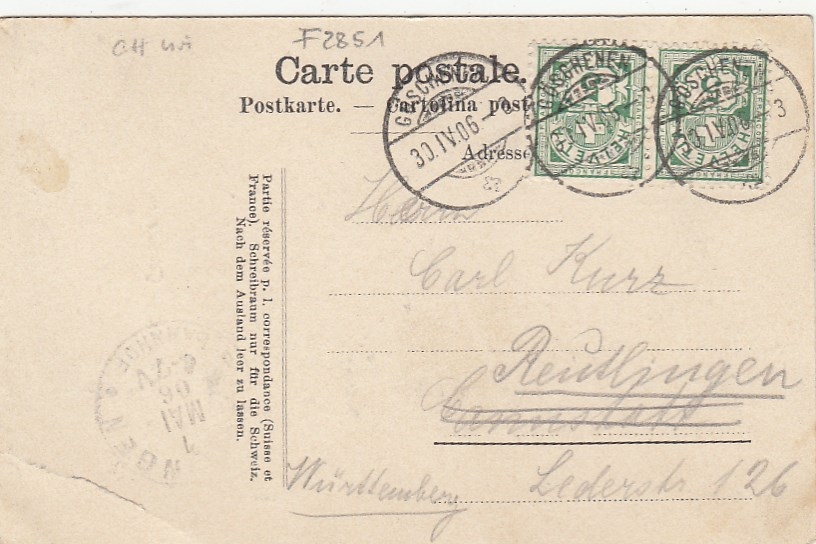 F2851
Carte postale.
Postkarte. — Cartolina post
Adresse
GÖSCHENEN
30.IV.06.
GÖSCHENEN
HELVETIA
GÖSCHEN
HELVETIA
Partie réservée p. l. correspondance (Suisse et
France). Schreibraum nur für die Schweiz.
Nach dem Ausland leer zu lassen.
Herrn
Carl Kurz
Reutlingen
Cannstatt
Württemberg
Lederstr 126
NGEN
1
MAI
06